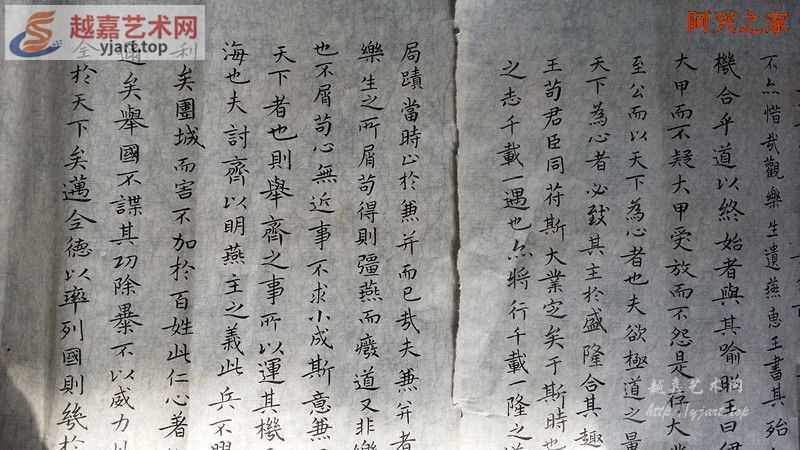 越嘉艺术网
yjart.top
阿兴之家
不亦惜哉觀樂生遺燕惠王書其殆
機合乎道以終始者與其喻昭王曰伊
大甲而不疑大甲受放而不怨是存大業
至公而以天下為心者也夫欲極道之量
天下為心者必致其主於盛隆合其趣
王苟君臣同苻斯大业定矣于斯時也
之志千載一遇也亦將行千載一隆之道
局蹟當時止於兼并而已哉夫兼并者
樂生之所屑苟得則彊燕而癈道又非樂
也不屑苟心無近事不求小成斯意兼
天下者也則舉齊之事所以運其機而
海也夫討齊以明燕主之義此兵不興
利
矣圍城而害不加於百姓此仁心著
邇矣舉國不謀其功除暴不以威力
全於天下矣邁全德以率列國則幾於
越嘉艺术网
http://yjart.top